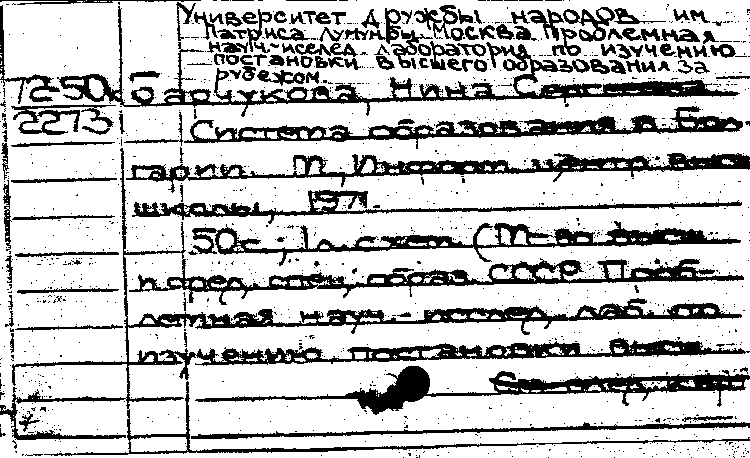 Университет дружбы народов им.
Патриса Лумумбы. Москва. Проблемная
науч.-исслед. лаборатория по изучению
постановки высшего образования за
рубежом.
72-50к Барчукова, Нина Сергеевна
2273 Система образования в Бол-
гарии. М., Информ. центр высш.
школы, 1971.
50с.; 1л. схем. (М-во высш.
и сред. спец. образ. СССР. Проб-
лемная науч.-исслед. лаб. по
изучению постановки высш.
См. след. карт.